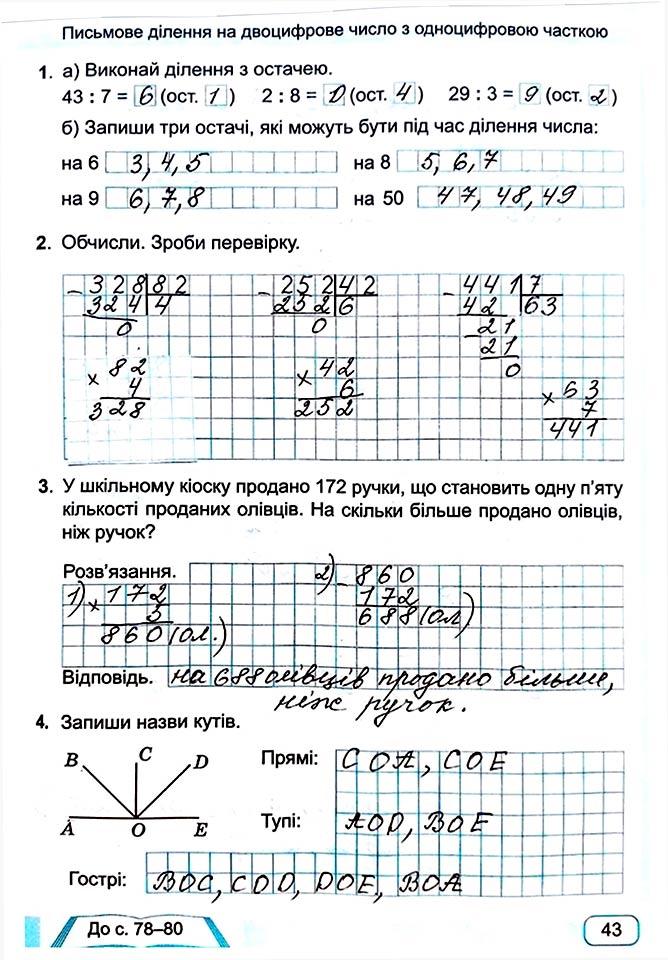 Письмове ділення на двоцифрове число з одноцифровою часткою
1. а) Виконай ділення з остачею.
43 : 7 = 6 (ост. 1) 2 : 8 = 0 (ост. 4) 29 : 3 = 9 (ост. 2)
б) Запиши три остачі, які можуть бути під час ділення числа:
на 6 3, 4, 5 на 8 5, 6, 7
на 9 6, 7, 8 на 50 47, 48, 49
2. Обчисли. Зроби перевірку.
- 328 | 82 - 252 | 42 - 441 | 7
324 | 4 252 | 6 42 | 63
0 0 - 21
21
0
× 82 × 42
4 6
328 252
× 63
7
441
3. У шкільному кіоску продано 172 ручки, що становить одну п'яту
кількості проданих олівців. На скільки більше продано олівців,
ніж ручок?
Розв'язання.
1) × 172 2) - 860
5 172
860 (ол.) 688 (ол)
Відповідь. на 688 олівців продано більше,
ніж ручок.
4. Запиши назви кутів.
B C D
A O E
Прямі: COA, COE
Тупі: AOD, BOE
Гострі: BOC, COD, DOE, BOA
До с. 78–80
43